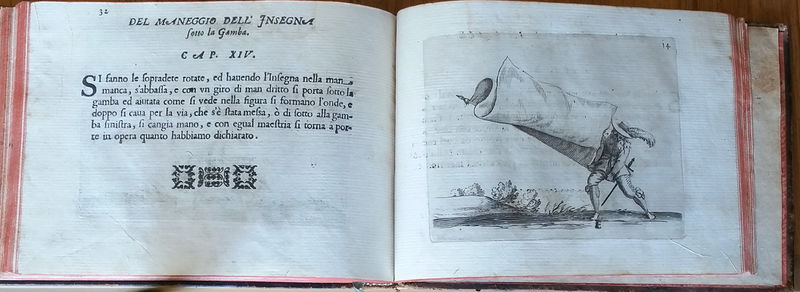 32
DEL MANEGGIO DELL' INSEGNA
sotto la Gamba.
CAP. XIV.
SI fanno le sopradete rotate, ed hauendo l'Insegna nella man
manca, s'abbassa, e con vn giro di man dritto si porta sotto la
gamba ed aiutata come si vede nella figura si formano l'onde, e
doppo si caua per la via, che s'è stata messa, ò di sotto alla gam-
ba sinistra, si cangia mano, e con egual maestria si torna a por-
re in opera quanto habbiamo dichiarato.
14